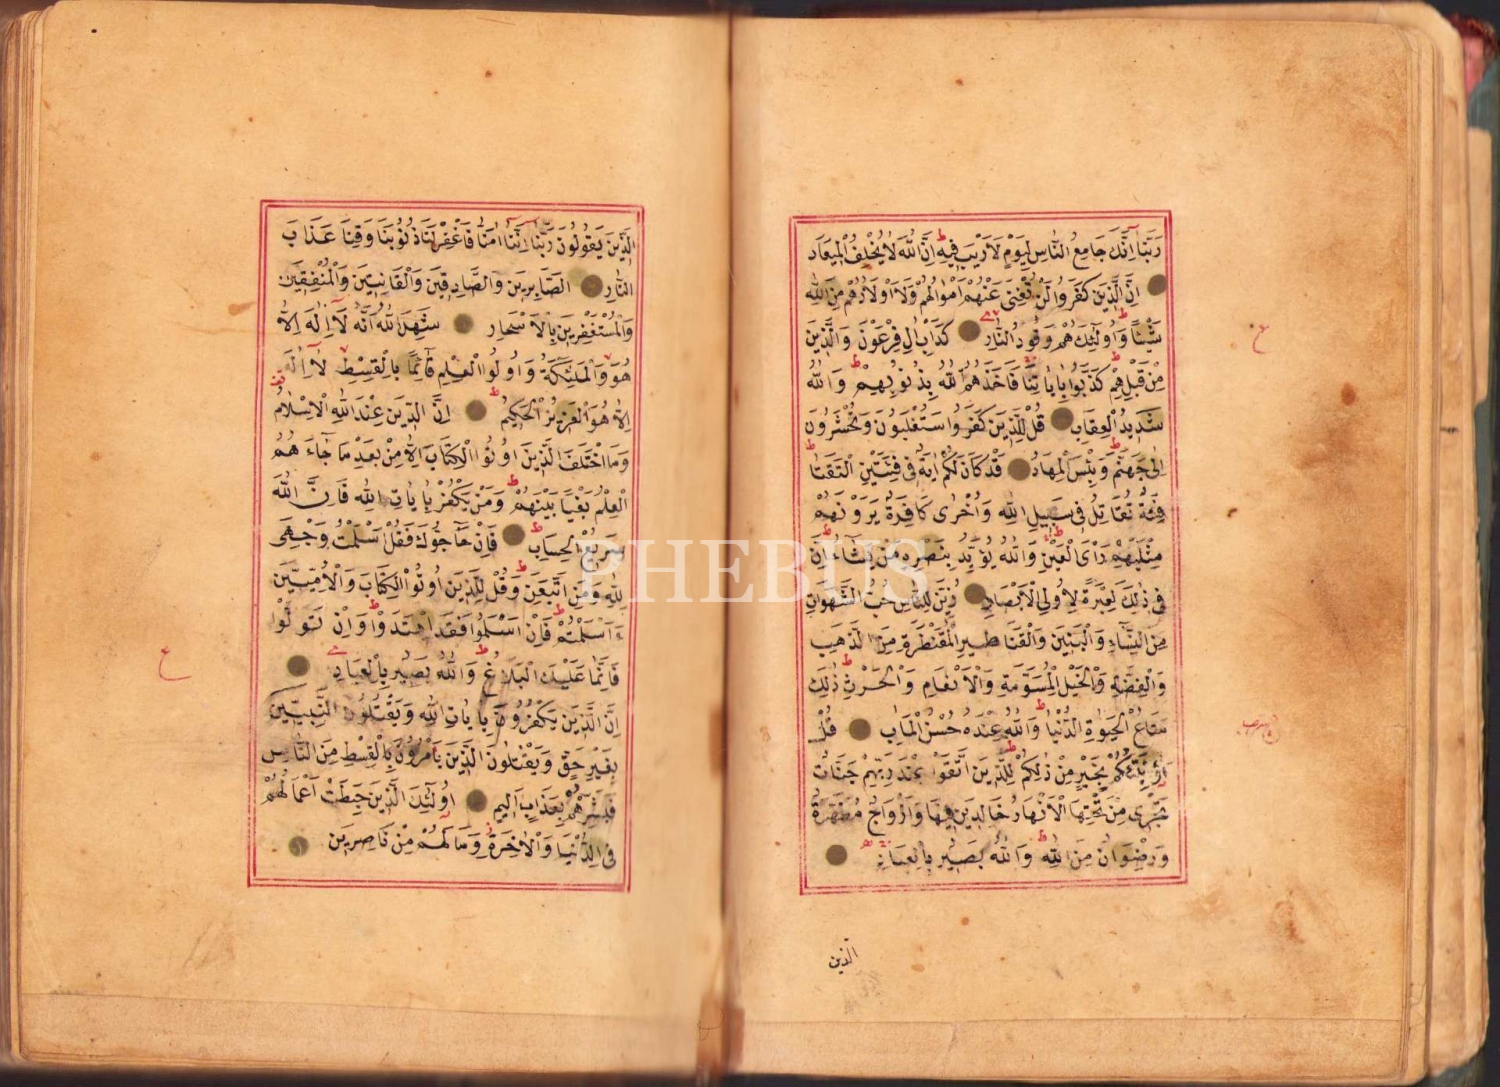 رَبَّنَا اِنَّكَ جَامِعُ النَّاسِ لِيَوْمٍ لَا رَيْبَ فِيهِ ط اِنَّ اللّٰهَ لَا يُخْلِفُ الْمِيعَادَ
اِنَّ الَّذِينَ كَفَرُوا لَنْ تُغْنِيَ عَنْهُمْ اَمْوَالُهُمْ وَلَا اَوْلَادُهُمْ مِنَ اللّٰهِ
شَيْئًا ط وَاُولٰئِكَ هُمْ وَقُودُ النَّارِ كَدَاْبِ اٰلِ فِرْعَوْنَ وَالَّذِينَ
مِنْ قَبْلِهِمْ ط كَذَّبُوا بِاٰيَاتِنَا فَاَخَذَهُمُ اللّٰهُ بِذُنُوبِهِمْ ط وَاللّٰهُ
شَدِيدُ الْعِقَابِ قُلْ لِلَّذِينَ كَفَرُوا سَتُغْلَبُونَ وَتُحْشَرُونَ
اِلٰى جَهَنَّمَ ط وَبِئْسَ الْمِهَادُ قَدْ كَانَ لَكُمْ اٰيَةٌ فِي فِئَتَيْنِ الْتَقَتَا ط
فِئَةٌ تُقَاتِلُ فِي سَبِيلِ اللّٰهِ وَاُخْرٰى كَافِرَةٌ يَرَوْنَهُمْ
مِثْلَيْهِمْ رَاْيَ الْعَيْنِ ط وَاللّٰهُ يُؤَيِّدُ بِنَصْرِهِ مَنْ يَشَاءُ ط اِنَّ
فِي ذٰلِكَ لَعِبْرَةً لِاُولِي الْاَبْصَارِ زُيِّنَ لِلنَّاسِ حُبُّ الشَّهَوَاتِ
مِنَ النِّسَاءِ وَالْبَنِينَ وَالْقَنَاطِيرِ الْمُقَنْطَرَةِ مِنَ الذَّهَبِ
وَالْفِضَّةِ وَالْخَيْلِ الْمُسَوَّمَةِ وَالْاَنْعَامِ وَالْحَرْثِ ط ذٰلِكَ
مَتَاعُ الْحَيٰوةِ الدُّنْيَا ط وَاللّٰهُ عِنْدَهُ حُسْنُ الْمَاٰبِ قُلْ
اَؤُنَبِّئُكُمْ بِخَيْرٍ مِنْ ذٰلِكُمْ ط لِلَّذِينَ اتَّقَوْا عِنْدَ رَبِّهِمْ جَنَّاتٌ
تَجْرِي مِنْ تَحْتِهَا الْاَنْهَارُ خَالِدِينَ فِيهَا وَاَزْوَاجٌ مُطَهَّرَةٌ
وَرِضْوَانٌ مِنَ اللّٰهِ ط وَاللّٰهُ بَصِيرٌ بِالْعِبَادِ
الذين
ع
ع
اَلَّذِينَ يَقُولُونَ رَبَّنَا اِنَّنَا اٰمَنَّا فَاغْفِرْ لَنَا ذُنُوبَنَا وَقِنَا عَذَابَ
النَّارِ الصَّابِرِينَ وَالصَّادِقِينَ وَالْقَانِتِينَ وَالْمُنْفِقِينَ
وَالْمُسْتَغْفِرِينَ بِالْاَسْحَارِ شَهِدَ اللّٰهُ اَنَّهُ لَا اِلٰهَ اِلَّا
هُوَ وَالْمَلٰئِكَةُ وَاُولُوا الْعِلْمِ قَائِمًا بِالْقِسْطِ لَا اِلٰهَ
اِلَّا هُوَ الْعَزِيزُ الْحَكِيمُ ط اِنَّ الدِّينَ عِنْدَ اللّٰهِ الْاِسْلَامُ
وَمَا اخْتَلَفَ الَّذِينَ اُوتُوا الْكِتَابَ اِلَّا مِنْ بَعْدِ مَا جَاءَهُمُ
الْعِلْمُ بَغْيًا بَيْنَهُمْ ط وَمَنْ يَكْفُرْ بِاٰيَاتِ اللّٰهِ فَاِنَّ اللّٰهَ
سَرِيعُ الْحِسَابِ ط فَاِنْ حَاجُّوكَ فَقُلْ اَسْلَمْتُ وَجْهِيَ
لِلّٰهِ وَمَنِ اتَّبَعَنِ ط وَقُلْ لِلَّذِينَ اُوتُوا الْكِتَابَ وَالْاُمِّيِّينَ
ءَاَسْلَمْتُمْ ط فَاِنْ اَسْلَمُوا فَقَدِ اهْتَدَوْا ط وَاِنْ تَوَلَّوْا
فَاِنَّمَا عَلَيْكَ الْبَلَاغُ ط وَاللّٰهُ بَصِيرٌ بِالْعِبَادِ
اِنَّ الَّذِينَ يَكْفُرُونَ بِاٰيَاتِ اللّٰهِ وَيَقْتُلُونَ النَّبِيِّينَ
بِغَيْرِ حَقٍّ وَيَقْتُلُونَ الَّذِينَ يَاْمُرُونَ بِالْقِسْطِ مِنَ النَّاسِ
فَبَشِّرْهُمْ بِعَذَابٍ اَلِيمٍ اُولٰئِكَ الَّذِينَ حَبِطَتْ اَعْمَالُهُمْ
فِي الدُّنْيَا وَالْاٰخِرَةِ وَمَا لَهُمْ مِنْ نَاصِرِينَ
PHEBUS